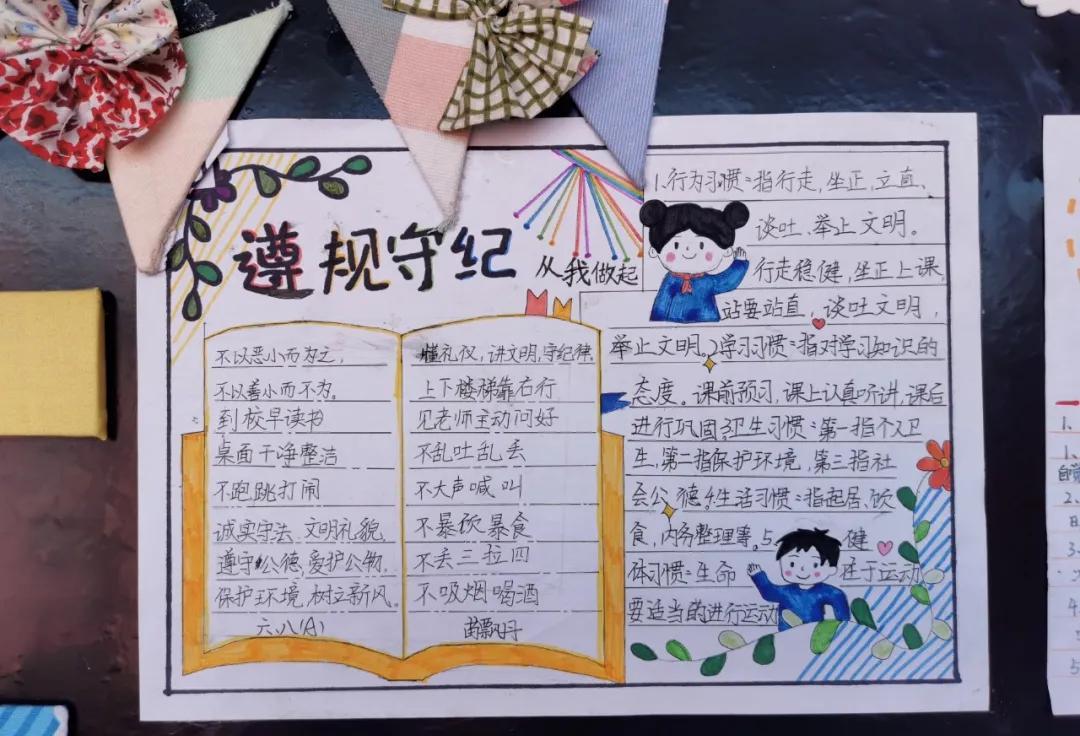 遵规守纪
从我做起
不以恶小而为之,
不以善小而不为。
到校早读书
桌面干净整洁
不跑跳打闹
诚实守法、文明礼貌,
遵守公德,爱护公物,
保护环境,树立新风。
六、八(A)
懂礼仪,讲文明,守纪律。
上下楼梯靠右行
见老师主动问好
不乱吐乱丢
不大声喊叫
不暴砍暴食
不丢三拉四
不吸烟喝酒
1.行为习惯:指行走,坐正,立直、
谈吐、举止文明。
行走稳健,坐正上课,
站要站直,谈吐文明,
举止文明。2学习习惯:指对学习知识的
态度。课前预习,课上认真听讲,课后
进行巩固,3卫生习惯:第一指个人卫
生,第二指保护环境,第三指社
会公德。4.生活习惯:指起居、饮
食,内务整理等。5、健
体习惯:生命在于运动
要适当的进行运动
1、
1、
2、
3、
4、
5